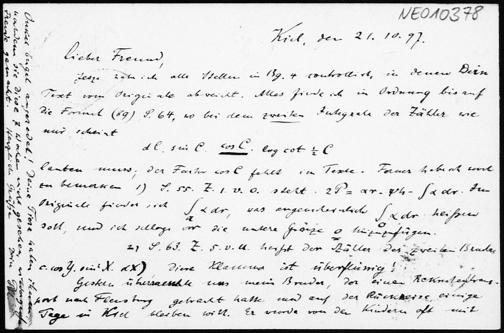 NE010378
Kiel, den 21.10.97.
Lieber Freund,
Jetzt habe ich alle Stellen in Bg. 4 controllirt, in denen Dein
Text vom Originale abweicht. Alles finde ich in Ordnung bis auf
die Formel (59) S. 64, wo bei dem zweiten Integrale der Zähler wie
mir scheint
dC. sin C. cos C. log cot ½ C
lauten muss; der Factor cos C fehlt im Texte. Ferner habe ich noch
zu bemerken 1) S. 55. Z. 1. v. o. steht 2P = ar - - ∫ α dr. Im
Originale findet sich ∫ α dr, was augenscheinlich ∫ α dr heissen
soll, und ich schlage vor die untere Grenze 0 hinzuzufügen.
2) S. 63. Z. 5. v. u. heisst der Zähler des zweiten Bruches
c. cos Y. sin² X. dX) diese Klammer ist überflüssig!
Gestern überraschte uns mein Bruder, der einen
nach Flensburg gebracht hatte und auf der Rückreise einige
Tage in Kiel bleiben will. Er wurde von den Kindern oft mit
Onkel angeredet! Deine Tiere haben
nachdem sie diese 7 Wochen nicht gesehen,
Freude gemacht. Herzliche Grüsse
Dein